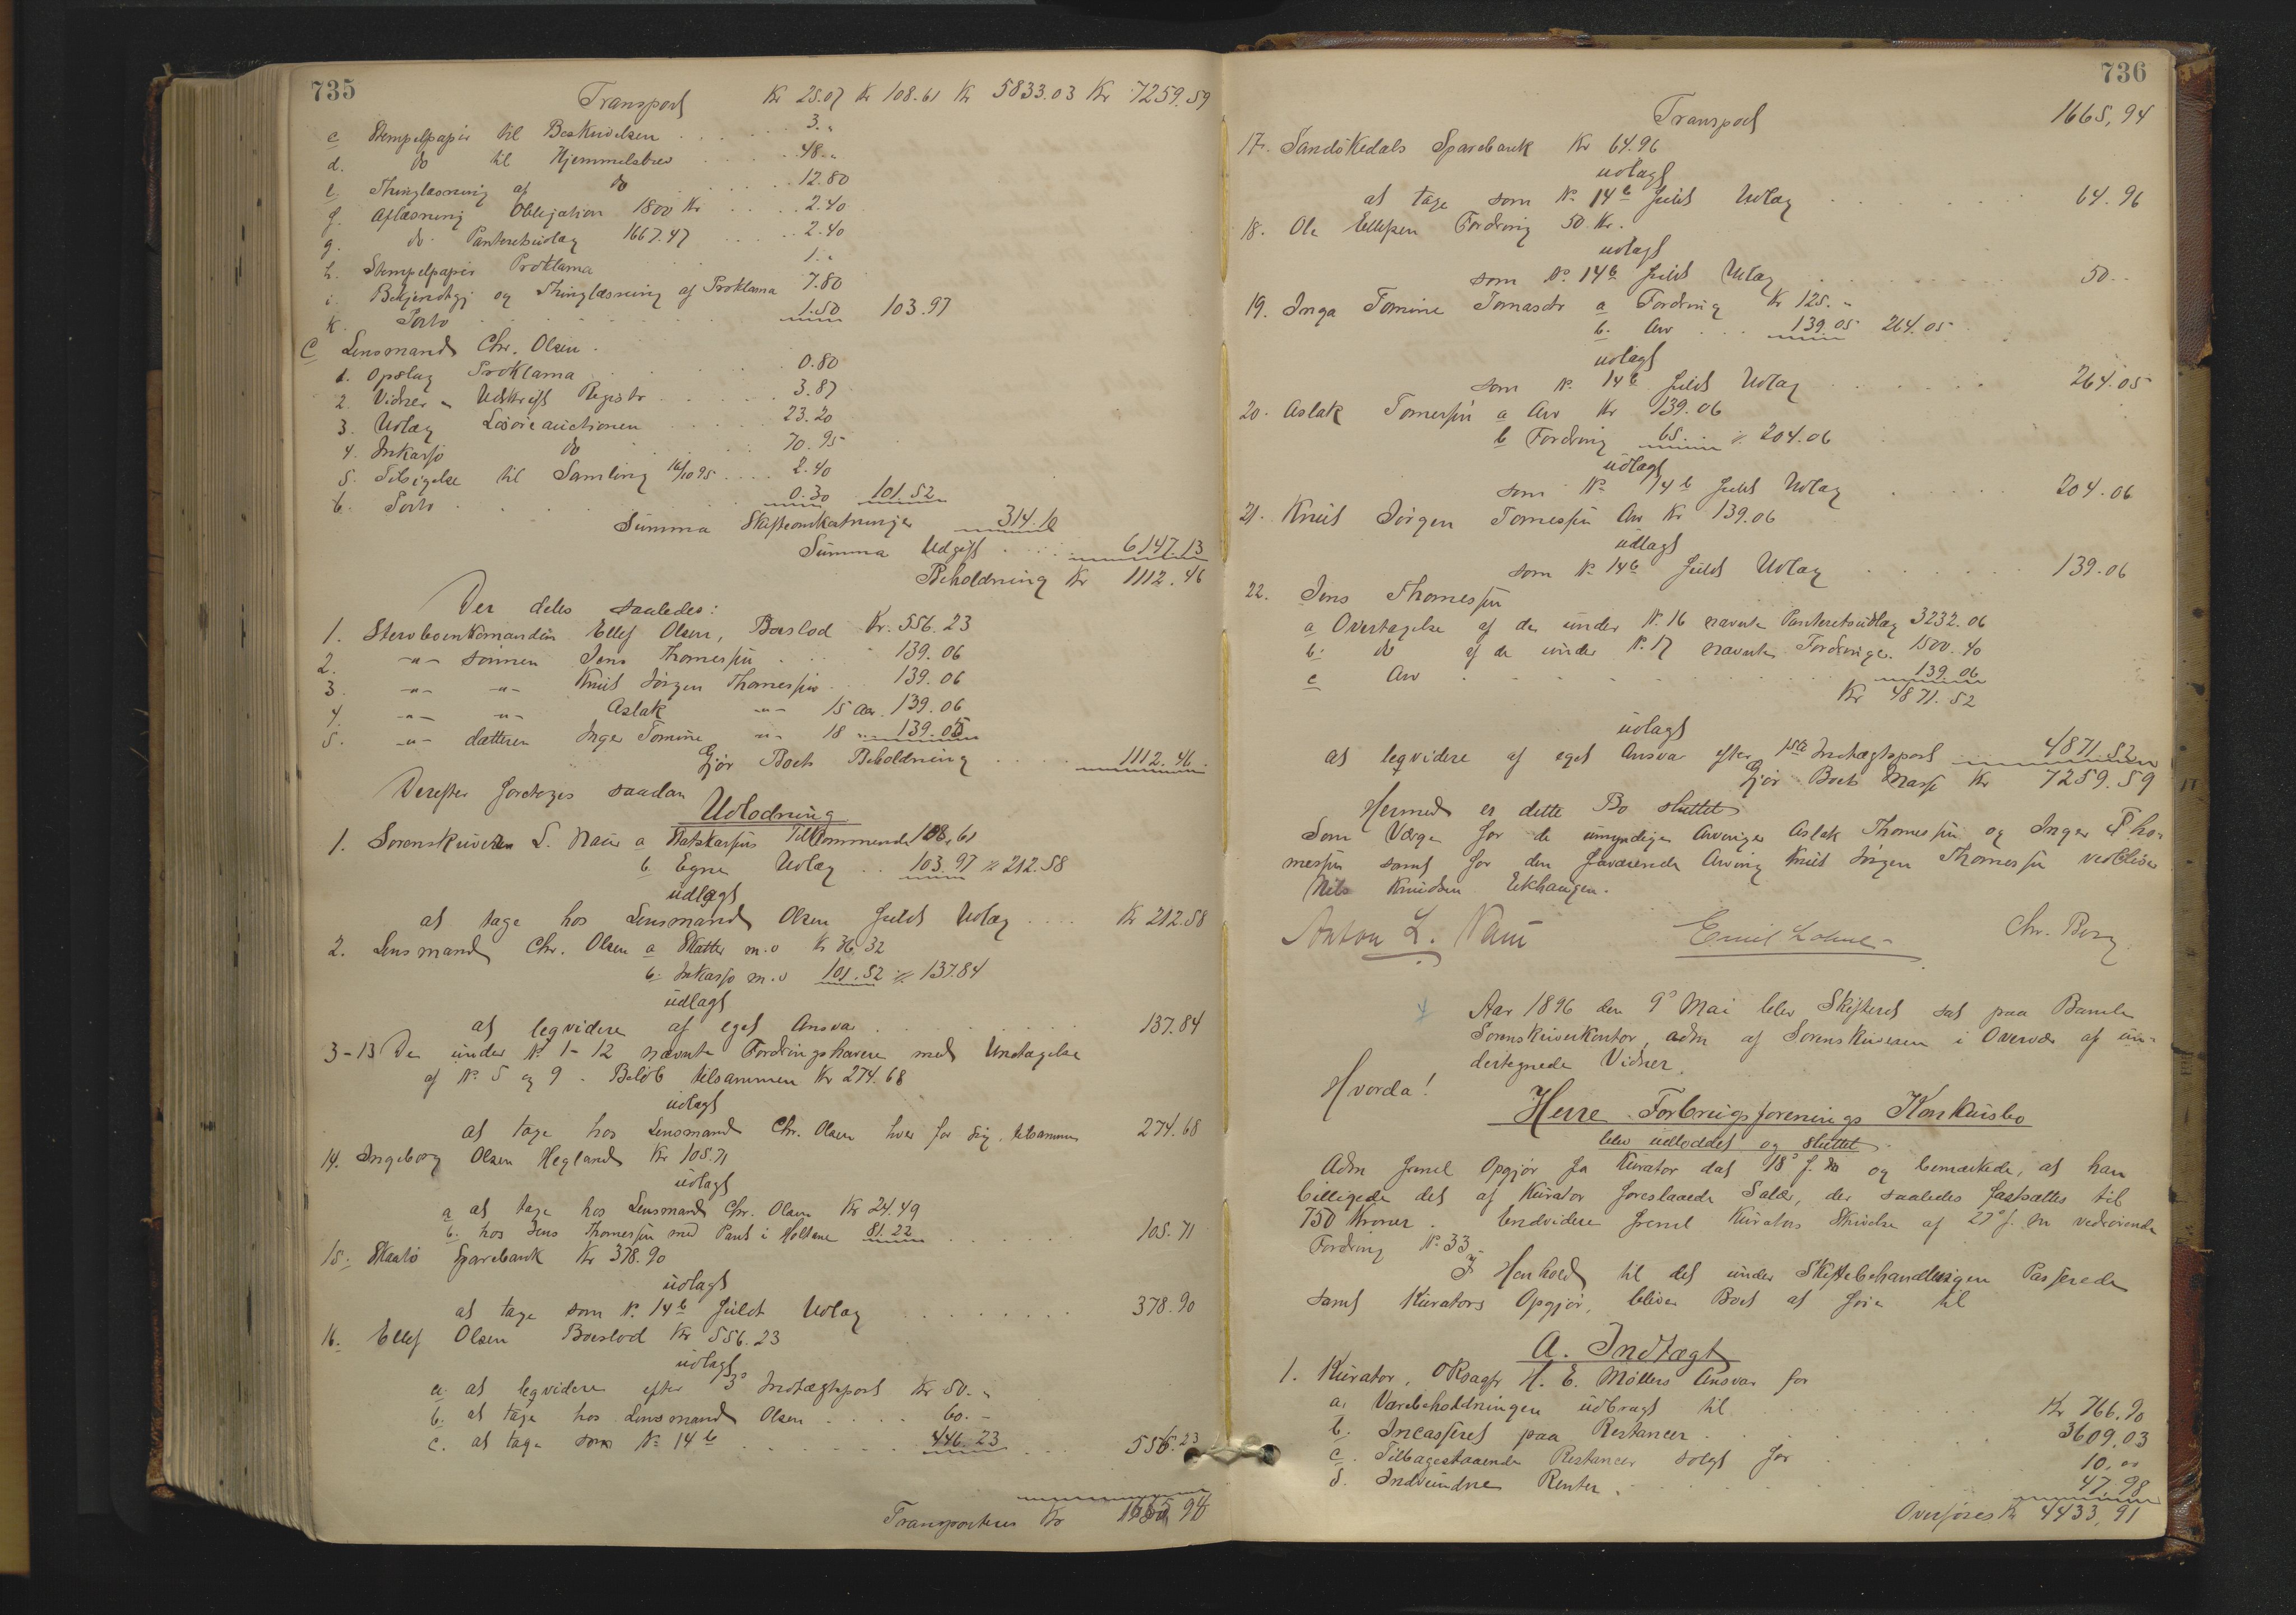 735
Transport Kr 25.07 Kr 108.61 Kr 5833.03 Kr 7259.59
c Stempelpapir til Beskrivelsen . . . . . 3."
d. do til Hjemmelsbrev . . . . . 48.."
e. Thinglæsning af do . . . . . 12.80
f. Aflæsning Obligation 1800 Kr . . . . 2.40
g. do Panteretsudlæg 1667.47 . . . . 2.40
h. Stempelpapir Proklama . . . . 1."
i. Bekjendtgj og Thinglæsning af Proklama 7.80
k. Porto . . . . . . . 1.50 103.97
C Lensmand Chr. Olsen.
1. Opslag Proklama . . . . . 0.80
2. Vidner - Udskrift Registr . . . . . 3.87
3. Udlæg Løsøreauctionen . . . . . 23.20
4. Inkasso do . . . . 70.95
5. Tilsigelse til Samling 16/10 95 . . . . 2.40
6. Porto . . . . . . . 0.30 101.52
Summa Skifteomkostninger 314.10
Summa Udgift . . . . 6147.13
Beholdning Kr 1112.46
Der deles saaledes:
1. Stervboenkemanden Ellef Olsen, Boeslod Kr. 556.23
2. -"- sønnen Jens Thomessøn . . . 139.06
3. -"- -"- Knut Jørgen Thomessøn . . 139.06
4. -"- -"- Aslak -"- 15 Aar. 139.06
5. -"- datteren Inger Tomine -"- 18 " 139.05
Gjør Boets Beholdning . . . . 1112.46.
Derefter foretoges saadan
Udlodning
1. Sorenskriveren L. Naur a Statskassens Tilkommende 108.61
b. Egne Udlæg . . 103.97 % 212.58
udlagt
at tage hos Lensmand Olsen fuldt Udlæg . . . . Kr 212.58
2. Lensmand Chr. Olsen a Skatter m.v Kr 36.32
b. Inkasso m.v 101.52 % 137.84
udlagt
at leqvidere af eget Ansvar . . . . . . . 137.84
3-13 De under Nr. 1-12 nævnte Fordringshavere med Undtagelse
af Nr. 5 og 9. Beløb tilsammen Kr 274.68
udlagt
at tage hos Lensmand Chr. Olsen hver for sig, tilsammen 274.68
14. Ingeborg Olsen Hegland Kr 105.71
udlagt
a at tage hos Lensmand Chr. Olsen Kr 24.49
b. hos Jens Thomessøn med Pant i Holtane 81.22 . . . . . . 105.71
15. Skaatø Sparebank Kr 378.90
udlagt
at tage som Nr. 14 b fuldt Udlæg . . . . . . . 378.90
16. Ellef Olsen Boeslod Kr 556.23
udlagt
a. at leqvidere efter 3die Indtægtspost Kr 50."
b. at tage hos Lensmand Olsen . . . . 60.-
c. at tage som Nr 14 b . . . . . . 446.23 . . . 556.23
Transporteres Kr 1665,94
736
Transport 1665,94
17. Sandøkedals Sparebank Kr 64.96
udlagt
at tage som Nr. 14 b fuldt Udlæg . . . . . . . 64.96
18. Ole Ellefsen Fordring 50 Kr.
udlagt
som Nr. 14 b fuldt Udlæg . . . . . . . . 50..
19. Inga Tomine Tomasdr a Fordring Kr 125."
b. Arv . . . 139.05 264.05
udlagt
som Nr. 14 b fuldt Udlæg . . . . . . 264.05
20. Aslak Tomessøn a Arv Kr 139.06
b Fordring 65.- % 204.06
udlagt
som Nr. 14 b fuldt Udlæg . . . . . 204.06
21. Knut Jørgen Tomessøn Arv Kr 139.06
udlagt
som Nr. 14 b fuldt Udlæg . . . . . . 139.06
22. Jens Thomessøn
a Overtagelse af de under Nr. 16 nævnte Panteretsudlæg 3232.06
b. do af de under Nr. 17 nævnte Fordringer. 1500.40
c Arv . . . . . . . . 139.06
Kr 4871.52
udlagt
at leqvidere af eget Ansvar efter 1ste Indtægtspost . . . 4871.52
Gjør Boets Masse Kr 7259.59
Hermed er dette Bo sluttet
Som Værge for de umyndige Arvinger Aslak Thomessøn og Inger Tho-
messøn samt for den fraværende Arving Knut Jørgen Thomessøn vedbliver
Nils Knudsen Ekhaugen.
Anton L. Naur Emil Chr. Borg
Aar 1896 den 9de Mai blev Skifteret sat paa Bamle
Sorenskriverkontor, adm af Sorenskriveren i Overvær af un-
dertegnede Vidner.
Hvorda!
Herre Forbrugsforenings Konkursbo
blev udloddet og sluttet.
Adm freml Opgjør fra Kurator dat 18de f. M og bemærkede, at han
billigede det af Kurator foreslaaede Salær, der saaledes fastsættes til
750 Kroner. Endvidere freml Kurators Skrivelse af 27de f. M vedrørende
Fordring Nr. 33
I Henhold til det under Skiftebehandlingen Passerede
samt Kurators Opgjør, bliver Boet at føre til
A. Indtægt
1. Kurator, Oksagfr H. E. Møllers Ansvar for
a. Varebeholdningen udbragt til . . . . . . Kr 766.90
b. Incasseret paa Restancer . . . . . . 3609.03
c. Tilbagestaaende Restancer solgt for . . . . . 10.""
d. Indvundne Renter . . . . . . . 47.98
Overføres Kr 4433,91